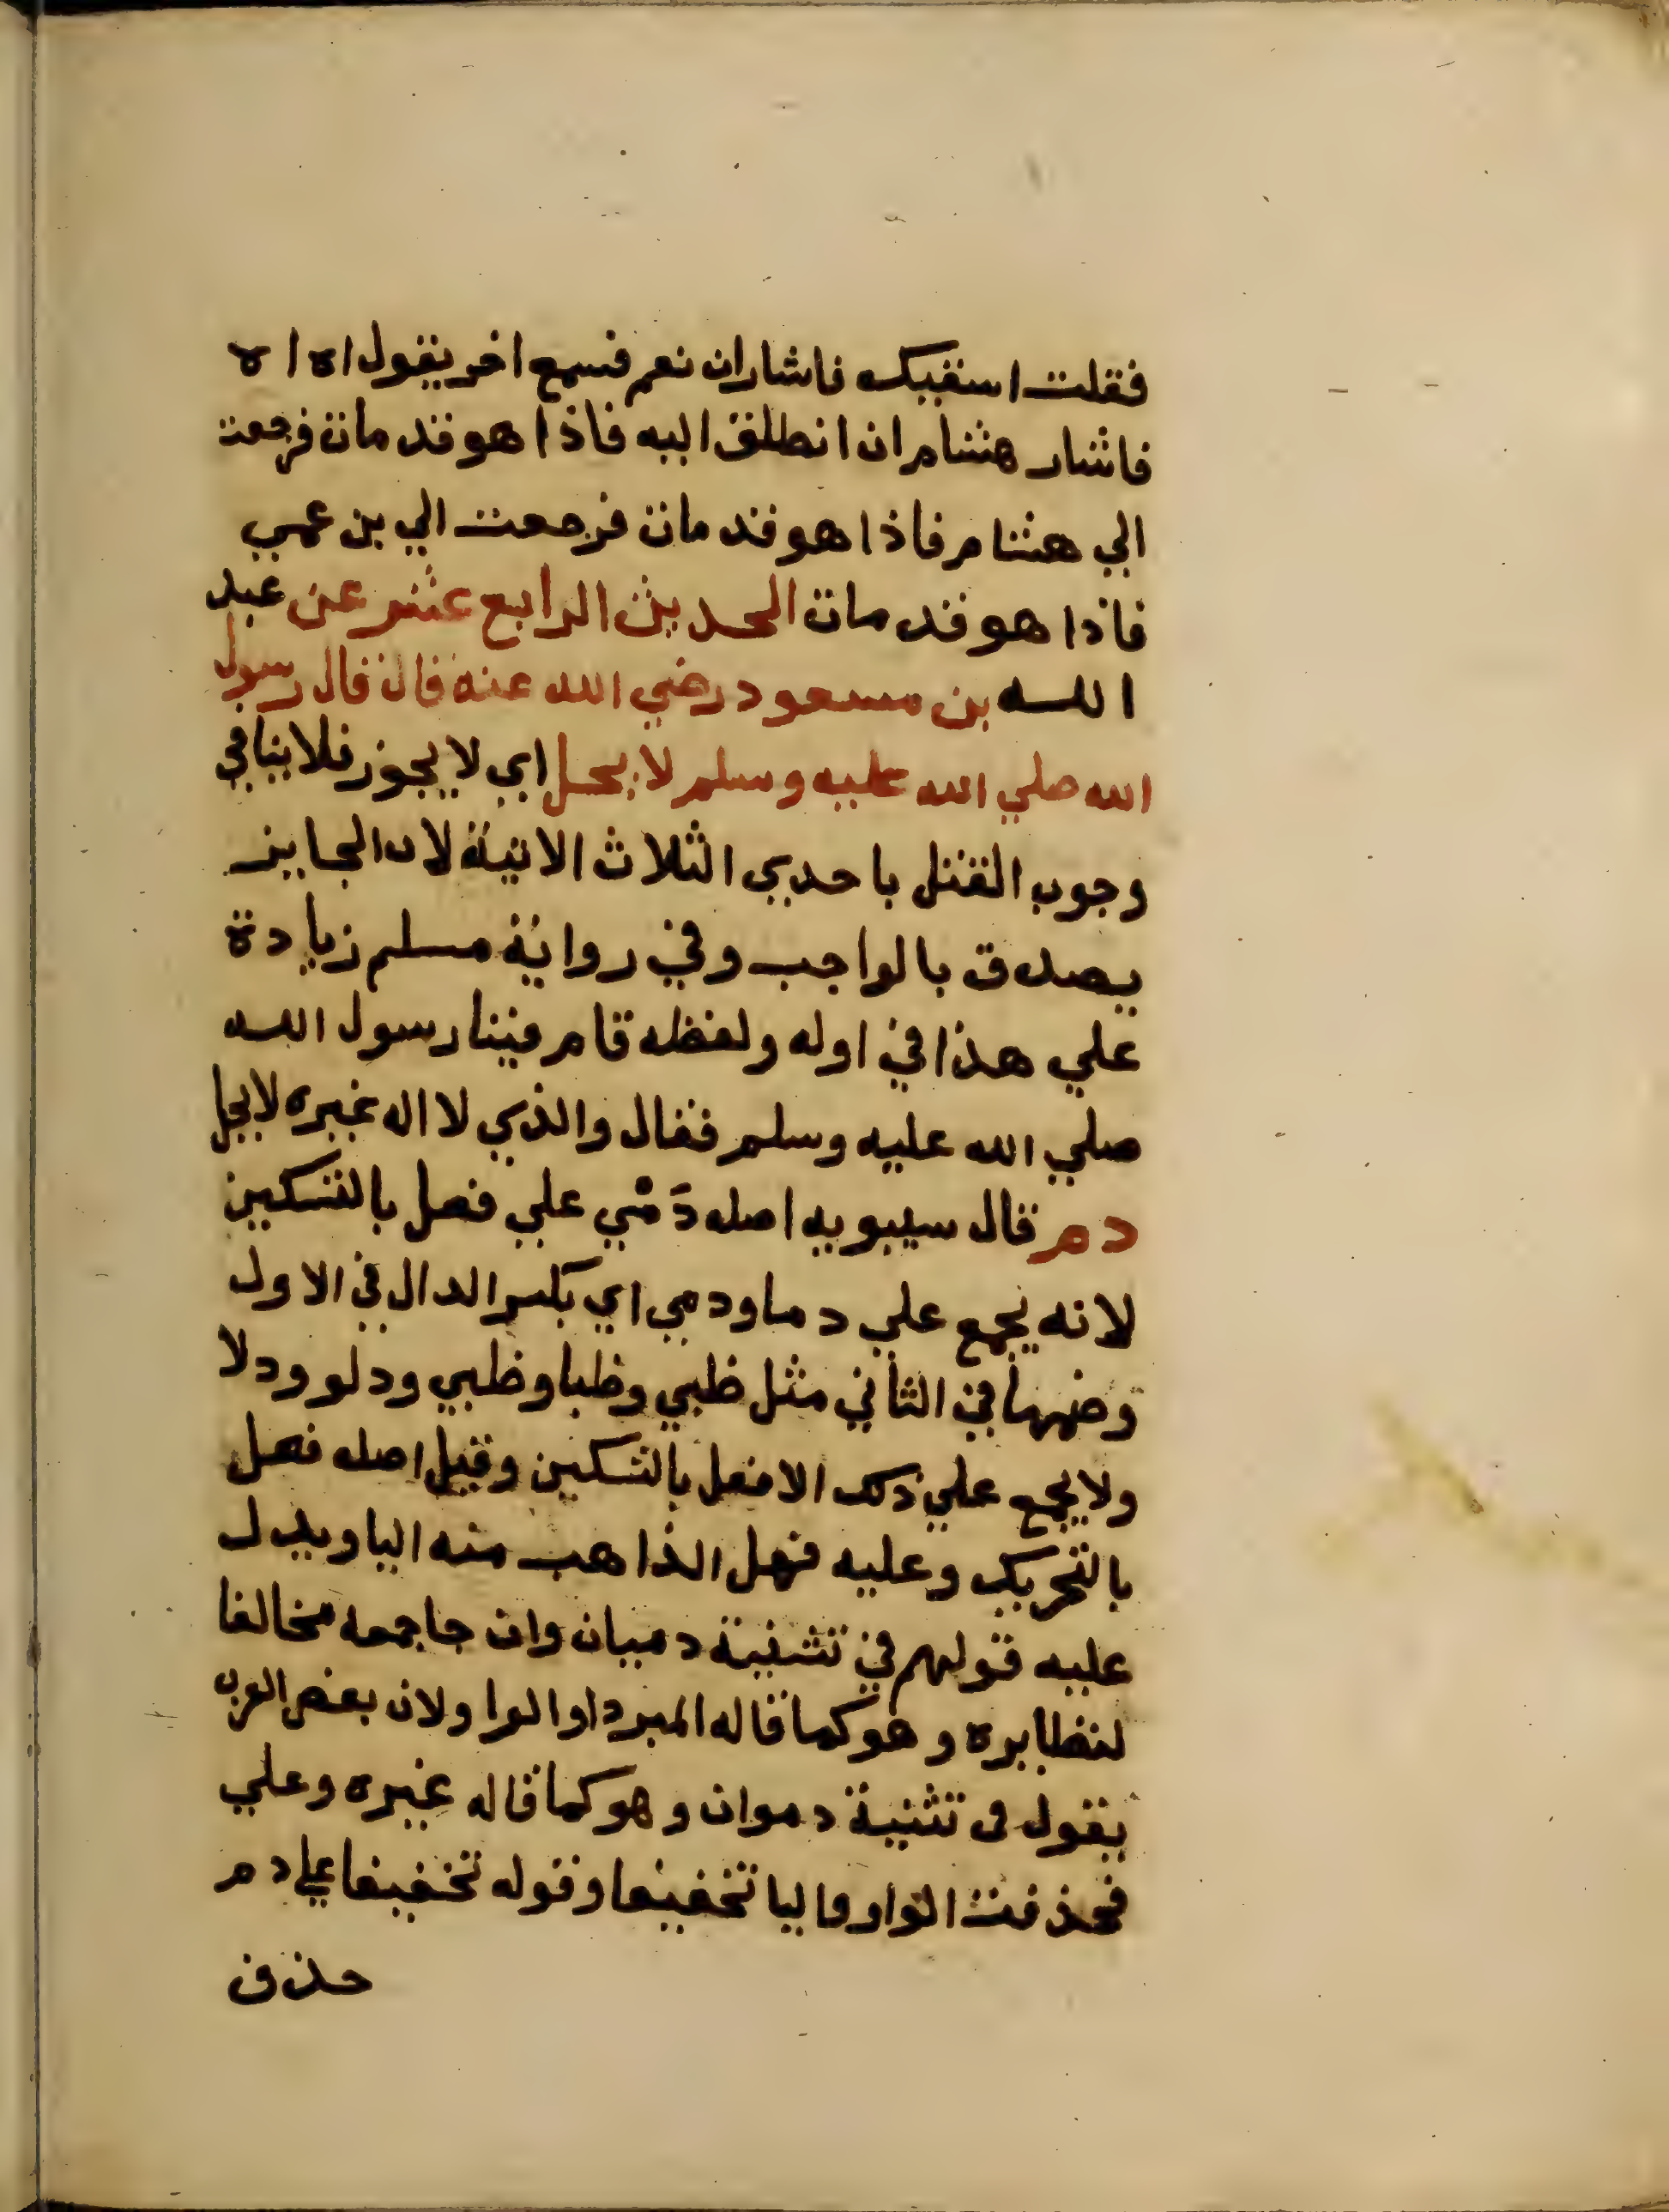 فقلت اسقيك فاشار ان نعم فسمع اخر يقول اه اه
فاشار هشام ان انطلق اليه فاذا هو قد مات فرجعت
الي هشام فاذا هو قد مات فرجعت الي بن عمي
فاذا هو قد مات الحديث الرابع عشر عن عبد
الله بن مسعود رضي الله عنه قال قال رسول
الله صلي الله عليه وسلم لا يحل اي لا يجوز فلا ينافي
وجوب القتل باحدي الثلاث الاتية لان الجايز
يصدق بالواجب وفي رواية مسلم زيادة
علي هذا في اوله ولفظه قام فينا رسول الله
صلي الله عليه وسلم فقال والذي لا اله غيره لا يحل
دم قال سيبويه اصله دَمْي علي فعل بالتسكين
لانه يجمع علي دما ودمي اي بكسر الدال في الاول
وضمها في الثاني مثل ظبي وظبا وظبي ودلو ودلا
ولا يجمع علي ذلك الا فعل بالتسكين وقيل اصله فعل
بالتحريك وعليه فهل الذاهب منه اليا ويدل
عليه قولهم في تثنية دميان وان جا جمعه مخالفا
لنظايره وهو كما قاله المبرد او الوا ولان بعض العرب
يقول في تثنية دموان وهو كما قاله غيره وعلي
فحذفت الواو واليا تخفيفا وقوله تخفيفا علي دم
حذف